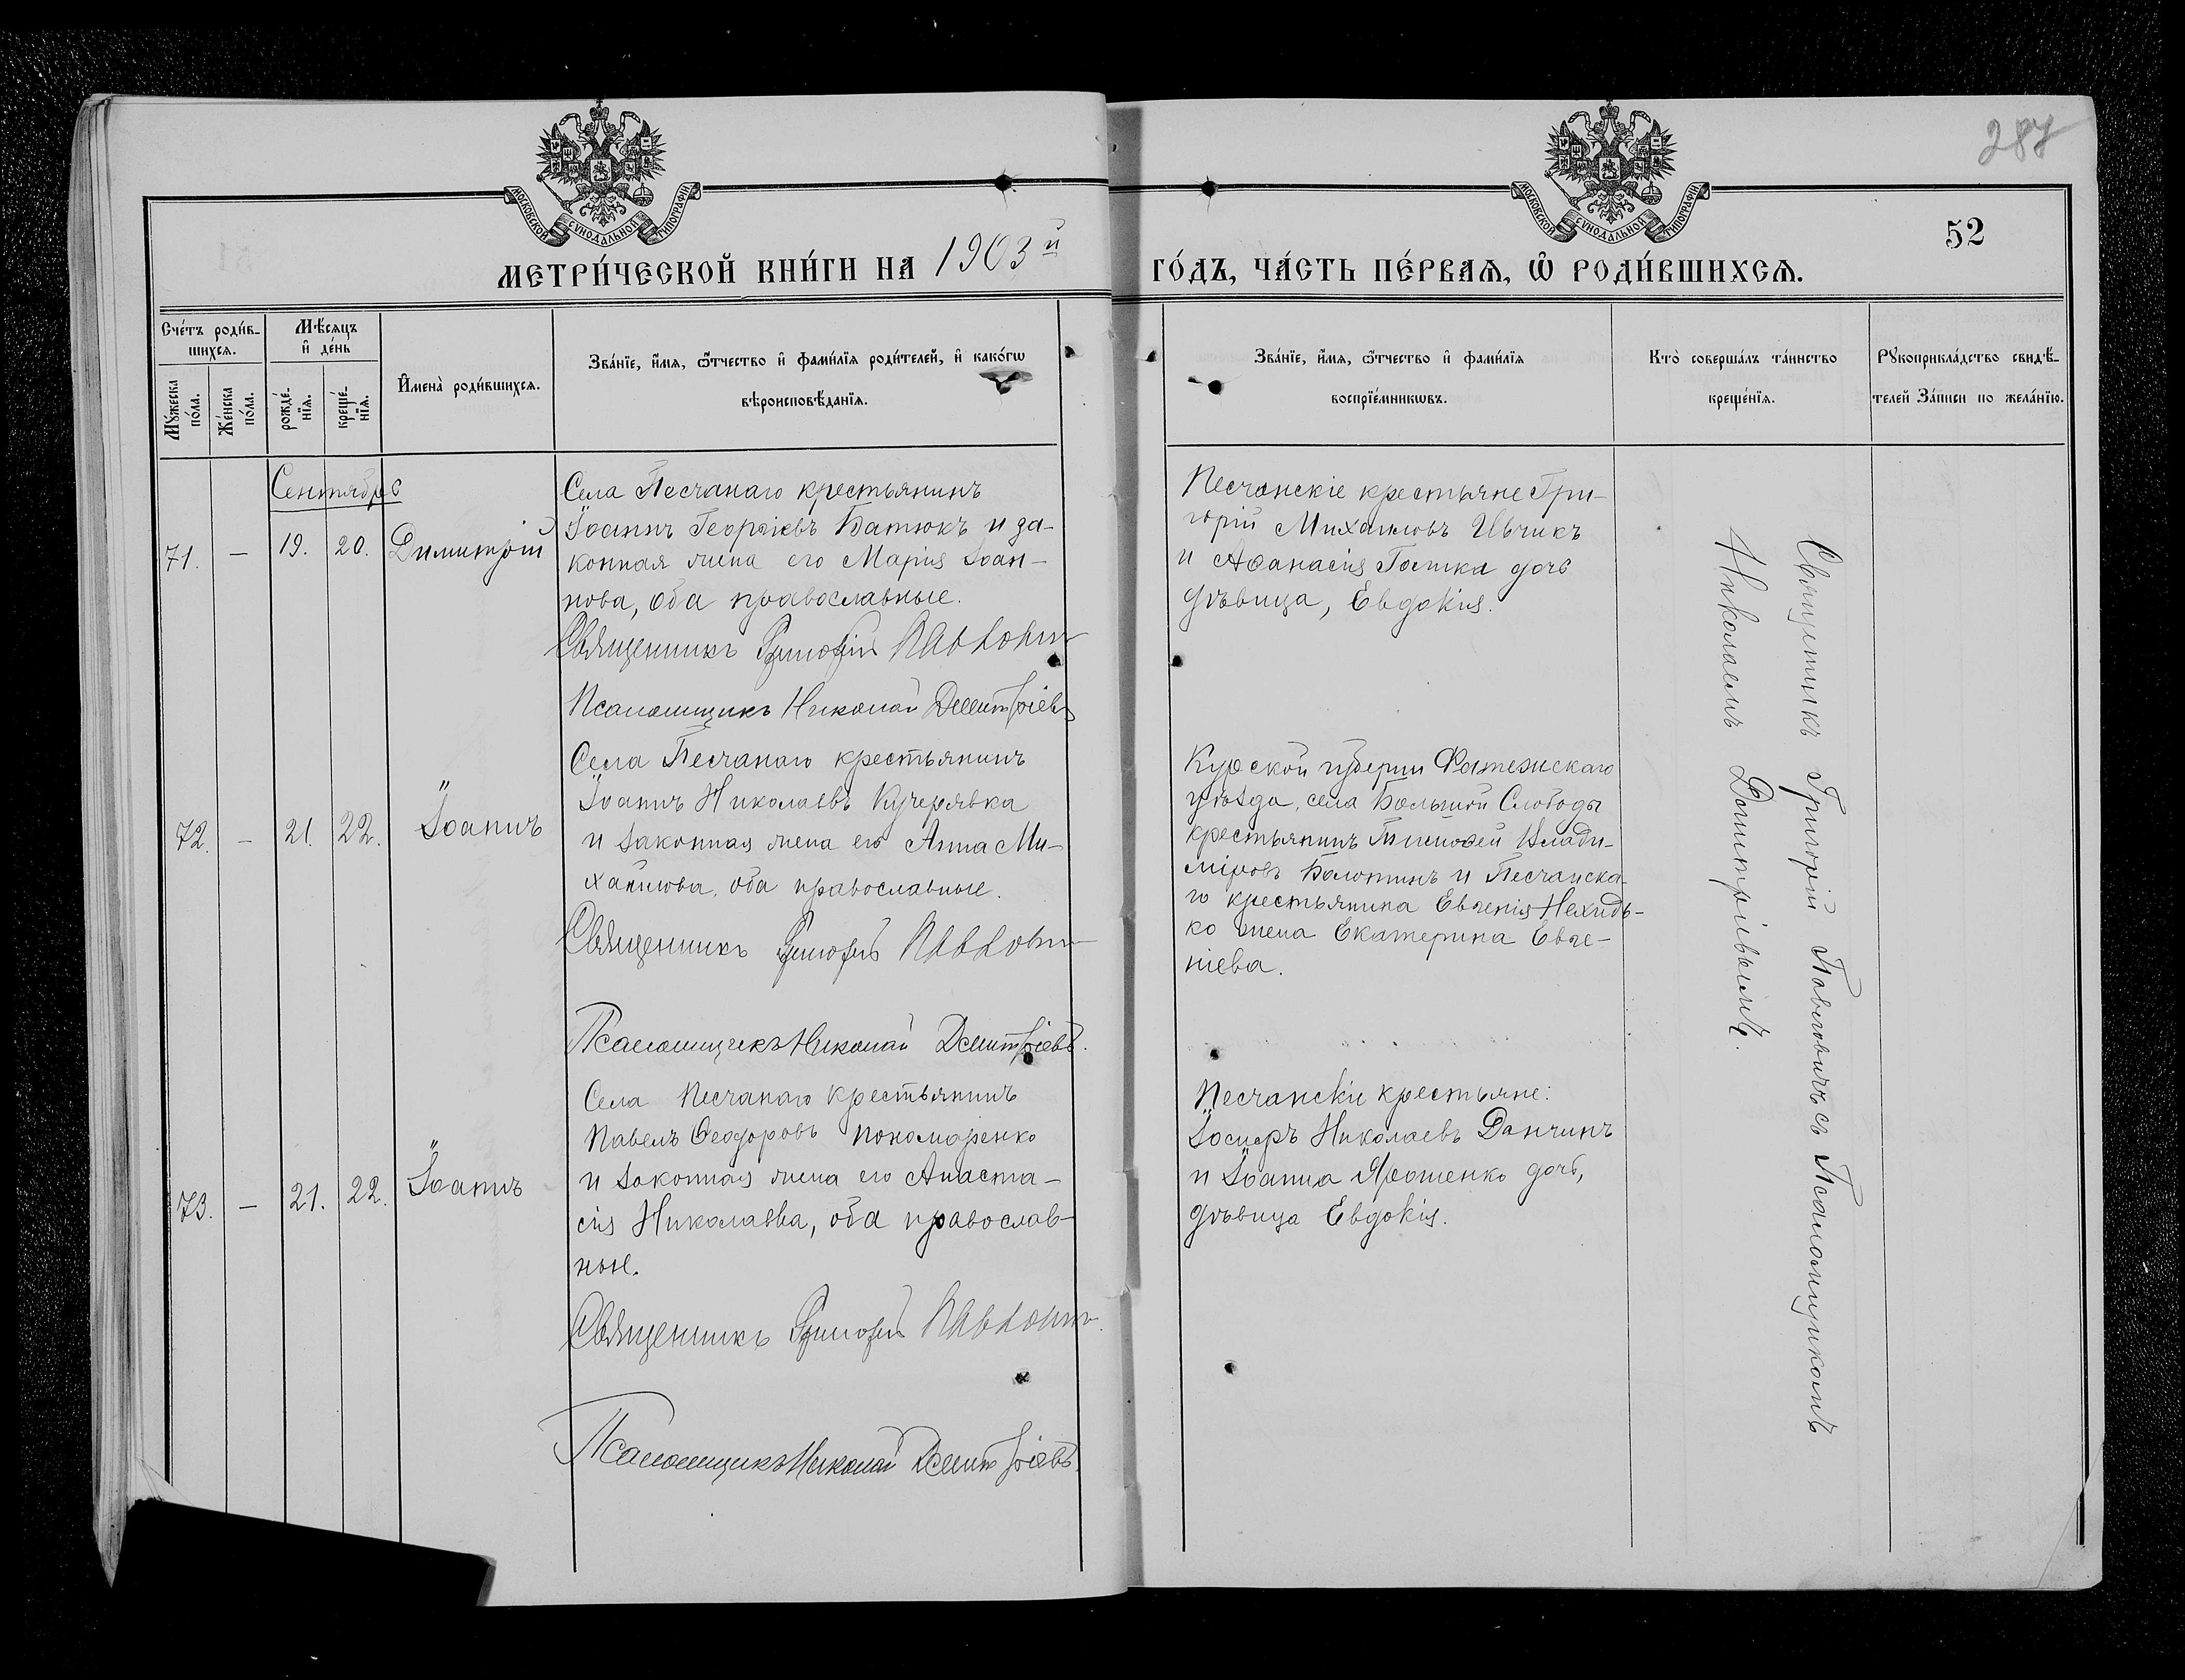 287
МОСКОВСКОЙ СѴНОДАЛЬНОЙ ТИПОГРАФІИ
МОСКОВСКОЙ СѴНОДАЛЬНОЙ ТИПОГРАФІИ
52
МЕТРИ́ЧЕСКОЙ КНИ́ГИ НА 1903й
ГО́ДЪ, ЧА́СТЬ ПЕ́РВАѦ, Ѿ РОДИ́ВШИХСѦ.
Сче́тъ роди́в-
шихсѧ.
Мꙋ́жеска по́ла.
Же́нска по́ла.
Мѣ́сѧцъ и҆ де́нь
рожде́-
нїѧ.
креще́-
нїѧ.
И҆мена̀ роди́вшихсѧ.
Зва́нїе, и҆́мѧ, ѻ҆́тчество и҆ фами́лїѧ роди́телей, и҆ како́гѡ
вѣроисповѣ́данїѧ.
Зва́нїе, и҆́мѧ, ѻ҆́тчество и҆ фами́лїѧ
воспрїе́мникѡвъ.
Кто̀ соверша́лъ та́инство
креще́нїѧ.
Рꙋкоприкла́дство свидѣ́-
телей За́писи по жела́нїю.
Сентябрь
71. — 19. 20. Димитрій
Села Песчанаго крестьянинъ
Іоаннъ Георгіевъ Батюкъ и за-
конная жена его Марія Іоан-
нова, оба православные.
Священникъ Григорій Павловичъ
Псаломщикъ Николай Димитріевъ
Песчанскіе крестьяне Гри-
горій Михаиловъ Ивчикъ
и Аѳанасія Гостка дочь
дѣвица, Евдокія.
72. — 21. 22. Іоаннъ
Села Песчанаго крестьянинъ
Іоаннъ Николаевъ Кучерявка
и законная жена его Анна Ми-
хайлова, оба православные.
Священникъ Григорій Павловичъ
Псаломщикъ Николай Димитріевъ.
Курской губерніи Фатежскаго
уѣзда, села Большой Слободы
крестьянинъ Тимоѳей Влади-
міровъ Болотинъ и Песчанска-
го крестьянина Евгенія Нехидь-
ко жена Екатерина Евге-
ніева.
73. — 21. 22. Іоаннъ
Села Песчанаго крестьянинъ
Павелъ Ѳеодоровъ Пономаренко
и законная жена его Анаста-
сія Николаева, оба православ-
ные.
Священникъ Григорій Павловичъ.
Псаломщикъ Николай Димитріевъ.
Песчанскіе крестьяне:
Іосифъ Николаевъ Данчинъ
и Іоанна Ярошенко дочь,
дѣвица Евдокія.
Священникъ Григорій Павловичъ съ Псаломщикомъ
Николаемъ Димитріевымъ.